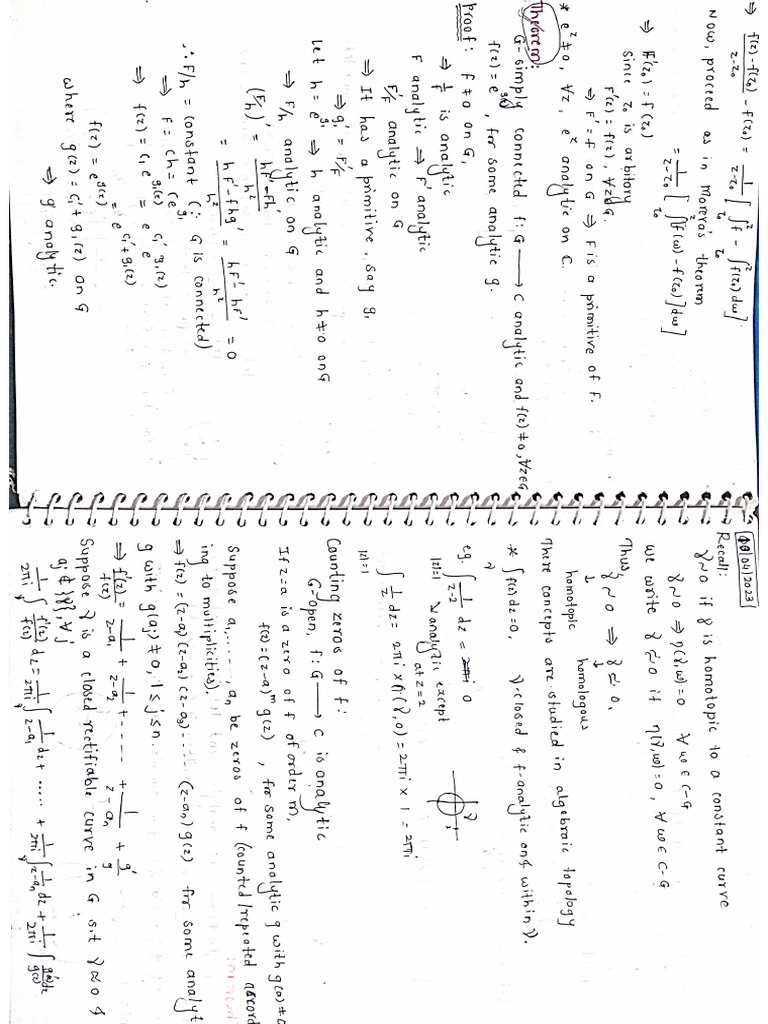 ⇒ f(z)-f(z₀)/z-z₀ - f(z₀) = 1/z-z₀ [∫_{z₀}^{z} f - ∫_{z₀}^{z} f(z₀)dw]
Now, proceed as in Morera's theorem
= 1/z-z₀ [∫_{z₀}^{z} [f(w) - f(z₀)] dw]
⇒ F'(z₀) = f(z₀)
Since z₀ is arbitary
F'(z) = f(z), ∀z∈G.
⇒ F' = f on G ⇒ F is a primitive of f.
* e^z ≠ 0, ∀z, e^z analytic on C.
Theorem:
G-simply connected f: G ⟶ C analytic and f(z)≠0, ∀z∈G
f(z) = e^{g(z)}, for some analytic g.
Proof: f ≠ 0 on G,
⇒ 1/f is analytic
F analytic ⇒ F' analytic
F'/F analytic on G
⇒ It has a primitive, say g₁
⇒ g₁' = F'/F
Let h = e^{g₁} ⇒ h analytic and h≠0 on G
⇒ F/h analytic on G
(F/h)' = hF' - Fh'/h²
= hF' - fhg'/h² = hF' - hF'/h² = 0
∴ F/h = constant (∵ G is connected)
⇒ F = ch = ce^{g₁}
⇒ f(z) = c₁e^{g₁(z)} = e^{c₁'} e^{g₁(z)}
= e^{c₁' + g₁(z)}
f(z) = e^{g(z)}
where g(z) = c₁' + g₁(z) on G
⇒ g analytic.
10/04/2023
Recall:
γ~0 if γ is homotopic to a constant curve
γ~0 ⇒ η(γ,w)=0 ∀w∈C-G
we write γ≈0 if η(γ,w)=0, ∀w∈C-G
Thus
γ~0 ⇒ γ≈0.
↓ ↓
homotopic homologous
There concepts are studied in algebraic topology
* ∫_γ f(z)dz = 0, γ-closed & f-analytic on & within γ.
eg. ∫_{|z|=1} 1/z-2 dz = 0
↘ analytic except
at z=2
γ
1
∫_{|z|=1} 1/z dz = 2πi × η(γ,0) = 2πi × 1 = 2πi
Counting zeros of f:
G-open, f: G ⟶ C is analytic
If z=a is a zero of f of order m,
f(z) = (z-a)^m g(z), for some analytic g with g(a)≠0
Suppose a₁,...., aₙ be zeros of f (counted/repeated accord
ing to multiplicities).
⇒ f(z) = (z-a₁)(z-a₂)(z-a₃)..... (z-aₙ) g(z) for some analyt
g with g(aⱼ)≠0, 1≤j≤n.
⇒ f'(z)/f(z) = 1/z-a₁ + 1/z-a₂ + ..... + 1/z-aₙ + g'/g
Suppose γ is a closed rectifiable curve in G s.t γ≈0 &
aⱼ ∉ {γ}, ∀j
1/2πi ∫_γ f'(z)/f(z) dz = 1/2πi ∫_γ 1/z-a₁ dz + ..... + 1/2πi ∫_γ 1/z-aₙ dz + 1/2πi ∫ g'(z)/g(z) dz